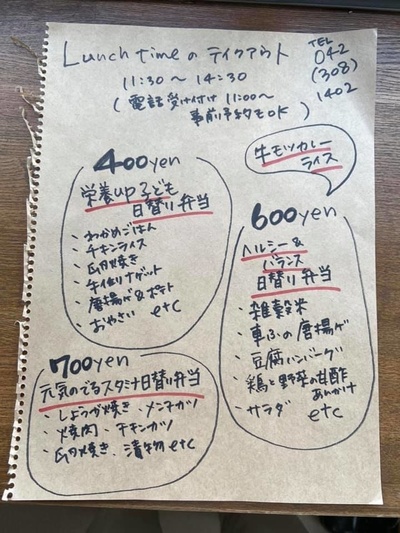 Lunch timeのテイクアウト
11:30〜14:30
(電話受け付け 11:00〜
事前予約もOK)
TEL
042
(308)
1402
牛モツカレー
ライス
400yen
栄養up子ども
日替り弁当
・わかめごはん
・チキンライス
・チキンナゲット
・唐揚げ&ポテト
・おやさい etc
600yen
ヘルシー&
バランス
日替り弁当
・雑穀米
・車ふの唐揚げ
・豆腐ハンバーグ
・鶏と野菜の甘酢
あんかけ
・サラダ etc
700yen
元気のでるスタミナ日替り弁当
・しょうが焼き・メンチカツ
・焼肉・チキンカツ
漬物 etc